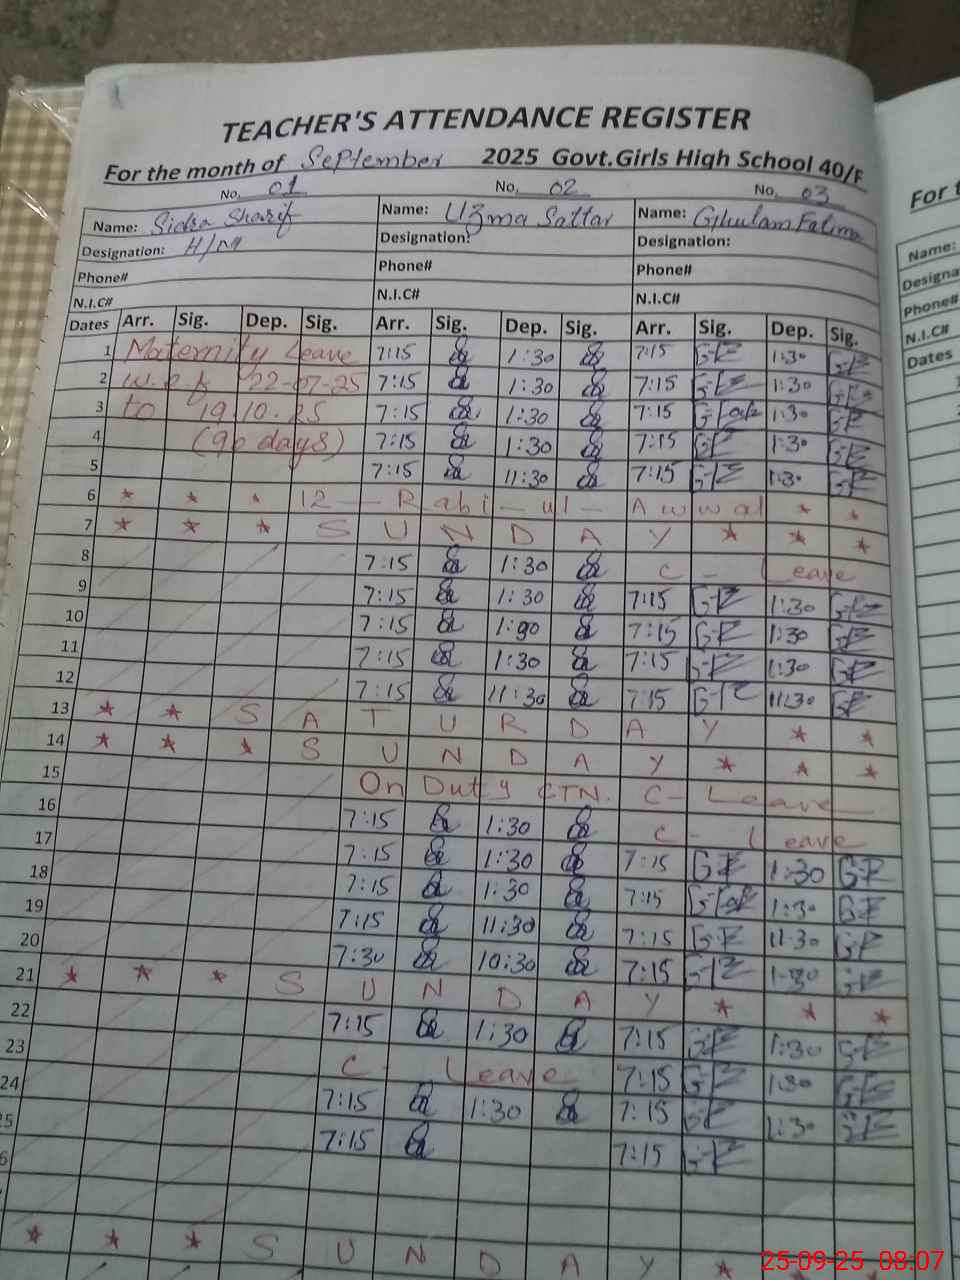 TEACHER'S ATTENDANCE REGISTER
For the month of September 2025 Govt.Girls High School 40/F
No. 01 No. 02 No. 03
Name: Sidra Sharif Name: Uzma Sattar Name: Ghulam Fatima
Designation: H/M Designation: Designation:
Phone# Phone# Phone#
N.I.C# N.I.C# N.I.C#
Dates Arr. Sig. Dep. Sig. Arr. Sig. Dep. Sig. Arr. Sig. Dep. Sig.
1 Maternity Leave 7:15 1:30 7:15 1:30
2 w.e.f 22-07-25 7:15 1:30 7:15 1:30
3 to 19.10.25 7:15 1:30 7:15 1:30
4 (90 days) 7:15 1:30 7:15 1:30
5 7:15 11:30 7:15 1:30
6 * * * 12 — Rabi - ul - Awwal * *
7 * * * S U N D A Y * * *
8 7:15 1:30 C - Leave
9 7:15 1:30 7:15 1:30
10 7:15 1:30 7:15 1:30
11 7:15 1:30 7:15 1:30
12 7:15 11:30 7:15 11:30
13 * * S A T U R D A Y * *
14 * * * S U N D A Y * * *
15 On Duty CTN. C - Leave
16 7:15 1:30 C - Leave
17 7:15 1:30 7:15 1:30
18 7:15 1:30 7:15 1:30
19 7:15 11:30 7:15 11:30
20 7:30 10:30 7:15 1:30
21 * * * S U N D A Y * * *
22 7:15 1:30 7:15 1:30
23 C - Leave 7:15 1:30
24 7:15 1:30 7:15 1:30
5 7:15 7:15
6
* * * S U N D A Y *
For t
Name:
Designa
Phone#
N.I.C#
Dates
25-09-25 08:07